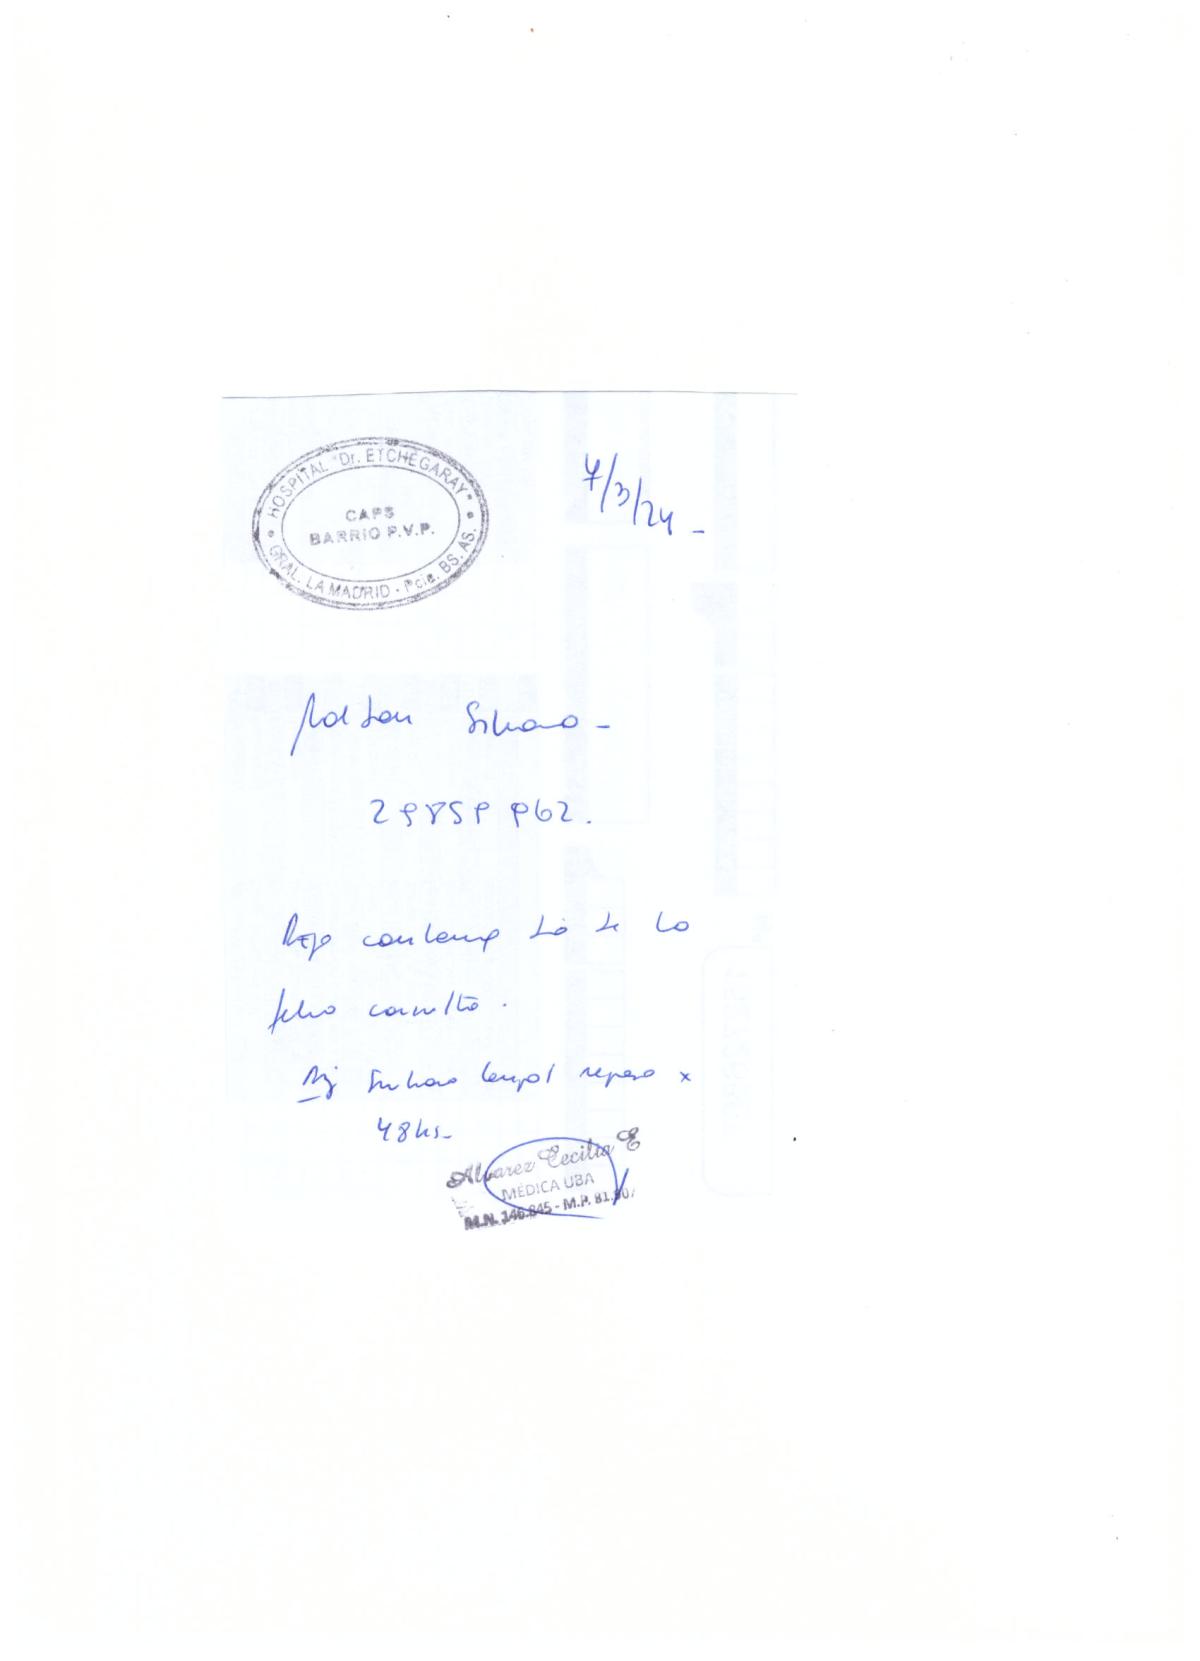 HOSPITAL "Dr. ETCHEGARAY"
CAPS
BARRIO P.V.P.
GRAL. LA MADRID - Pcia. BS. AS.
7/3/24 -
Roldan Silvana -
29859962.
Dejo constancia de la
fecha consulta.
reposo x
48hs-
Alvarez Cecilia E
MÉDICA UBA
M.N. 146.845 - M.P.